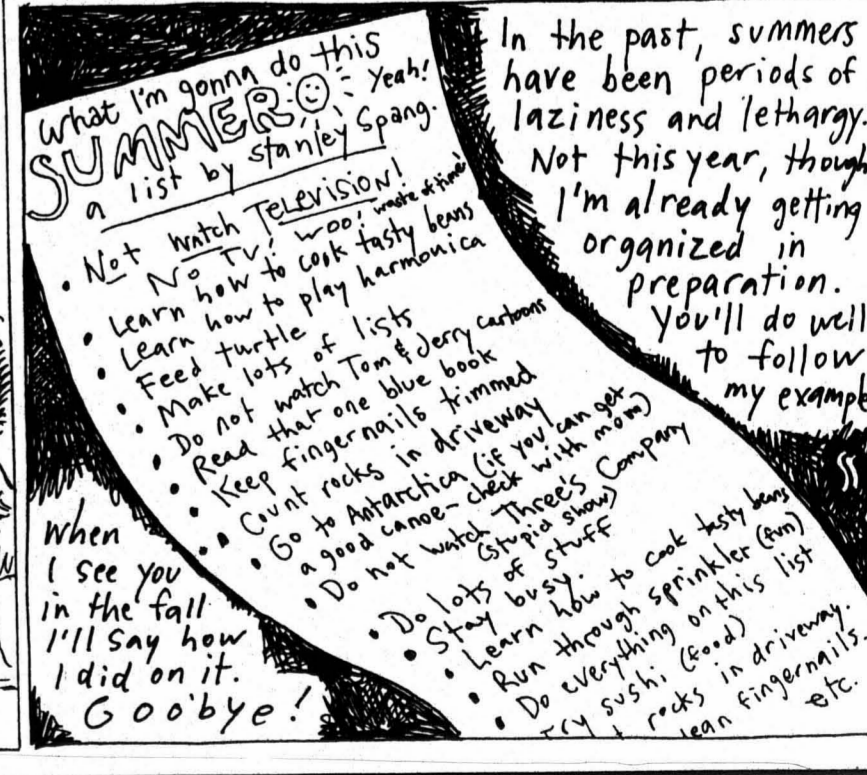 What I'm gonna do this
SUMMER Yeah!
a list by stanley Spang.
• Not watch TELEVISION!
No TV! WOO! waste of time!
• Learn how to cook tasty beans
• Learn how to play harmonica
• Feed turtle
• Make lots of lists
• Do not watch Tom & Jerry cartoons
• Read that one blue book
• Keep fingernails trimmed
• Count rocks in driveway
• Go to Antarctica (if you can get
a good canoe - check with mom)
• Do not watch Three's Company
(stupid show)
• Do lots of stuff
• Stay busy.
• Learn how to cook tasty beans
• Run through sprinkler (fun)
• Do everything on this list
Try sushi (food)
rocks in driveway.
fingernails.
etc.
In the past, summers
have been periods of
laziness and lethargy.
Not this year, though
I'm already getting
organized in
preparation.
You'll do well
to follow
my example
When
I see you
in the fall
I'll say how
I did on it.
Goo'bye!